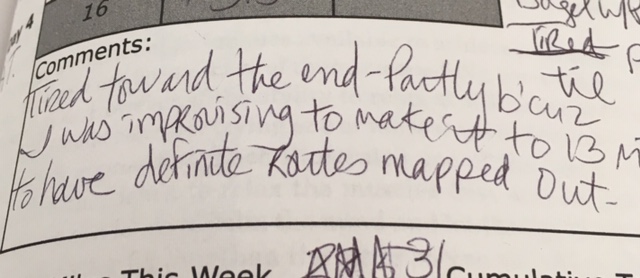 16
Bagel w/P
Tired
ay 4
Comments:
Tired toward the end-Partly b'cuz
til
I was improvising to make it to 13 M
to have definite Routes mapped out-
This Week
31
Cumulative T